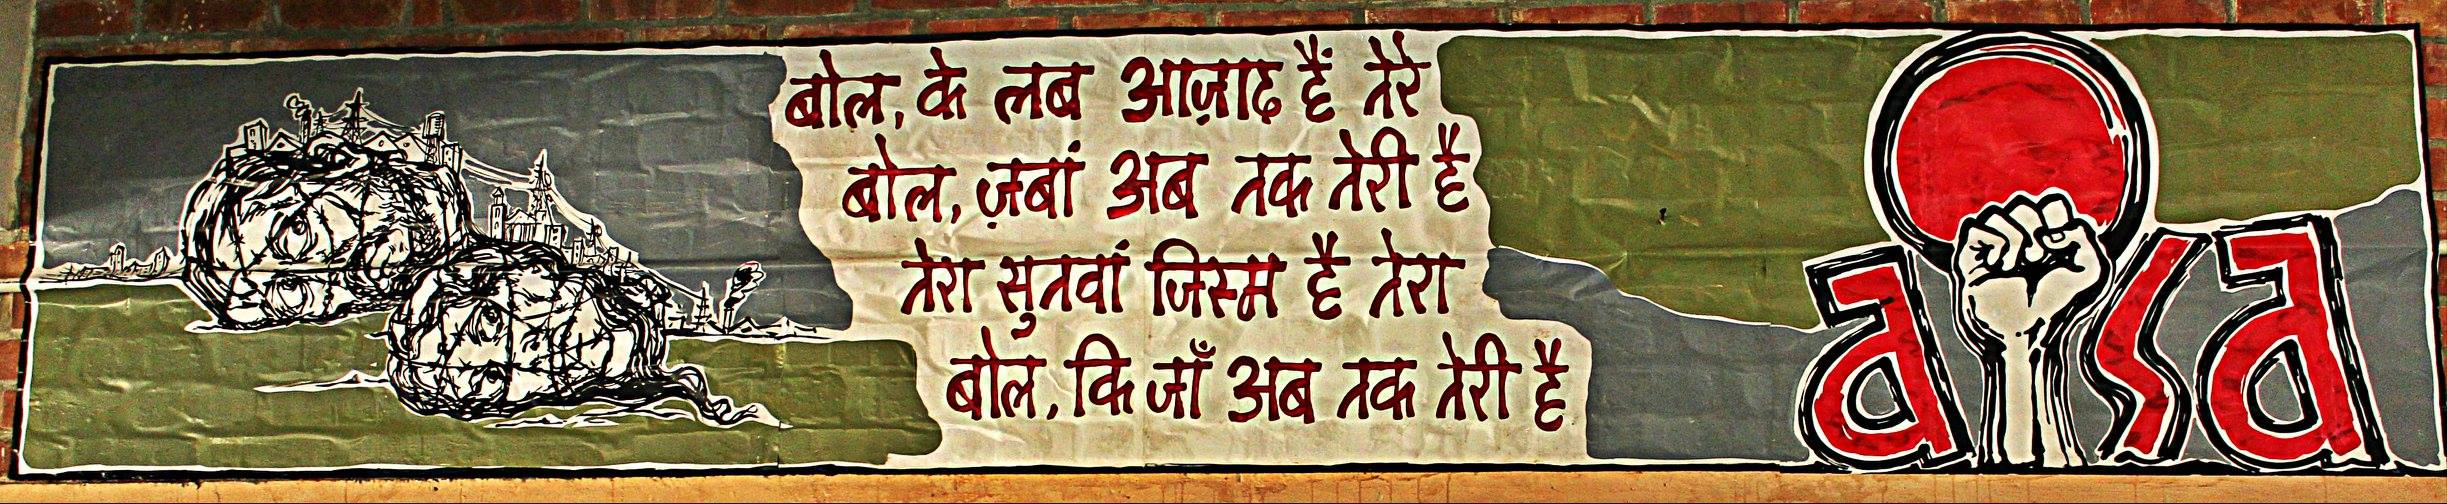 बोल, के लब आज़ाद हैं तेरे
बोल, ज़बां अब तक तेरी है
तेरा सुतवां जिस्म है तेरा
बोल, कि जाँ अब तक तेरी है
aisa